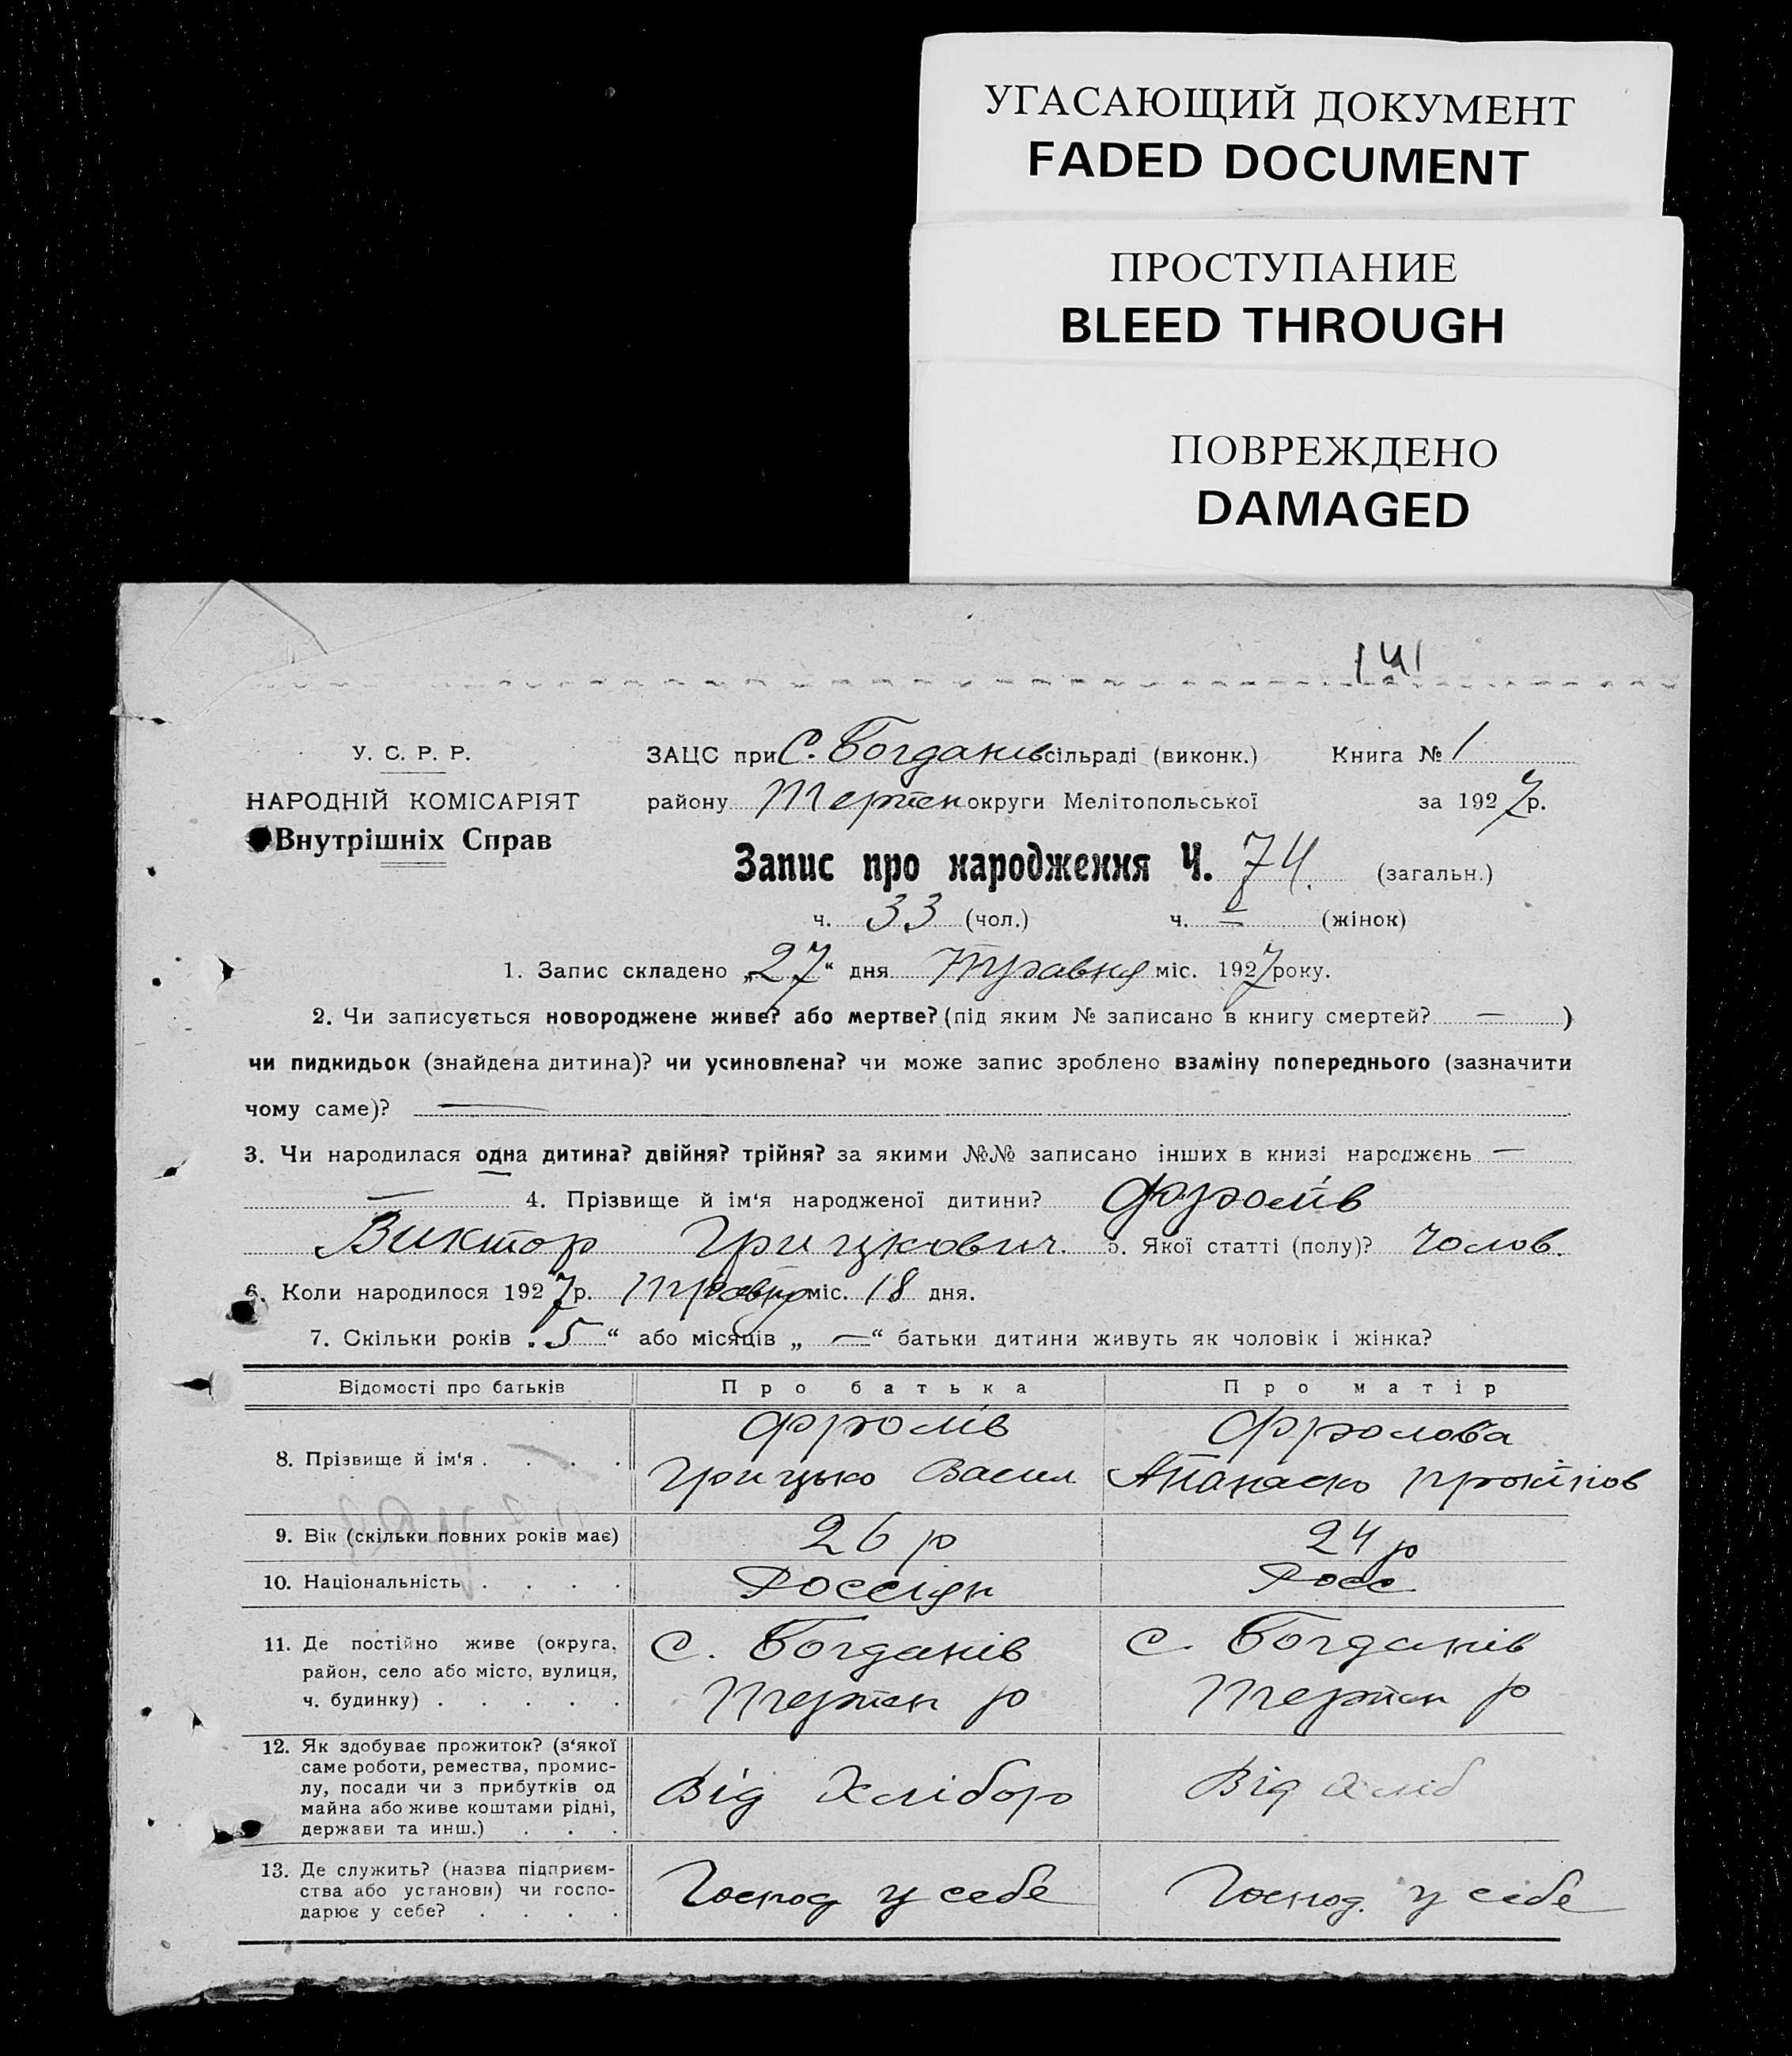 УГАСАЮЩИЙ ДОКУМЕНТ
FADED DOCUMENT
ПРОСТУПАНИЕ
BLEED THROUGH
ПОВРЕЖДЕНО
DAMAGED
141
У. С. Р. Р.
НАРОДНІЙ КОМІСАРІЯТ
Внутрішніх Справ
ЗАЦС при С. Богданів сільраді (виконк.) Книга № 1
району Терпен округи Мелітопольської за 1927 р.
Запис про народження Ч. 74. (загальн.)
ч. 33 (чол.) ч. — (жінок)
1. Запис складено „27“ дня Травня міс. 1927 року.
2. Чи записується новороджене живе? або мертве? (під яким № записано в книгу смертей? — )
чи пидкидьок (знайдена дитина)? чи усиновлена? чи може запис зроблено взаміну попереднього (зазначити
чому саме)? —
3. Чи народилася одна дитина? двійня? трійня? за якими №№ записано інших в книзі народжень —
— 4. Прізвище й ім‘я народженої дитини? Фролів
Виктор Грицкович. 5. Якої статті (полу)? Чолов.
6. Коли народилося 1927 р. Травня міс. 18 дня.
7. Скільки років „5“ або місяців „—“ батьки дитини живуть як чоловік і жінка?
Відомості про батьків Про батька Про матір
8. Прізвище й ім‘я . . . . Фролів Фролова
Грицько Васил
9. Вік (скільки повних років має) 26 р 24 р
10. Національність . . . . Россіян Росс
11. Де постійно живе (округа, с. Богданів с. Богданів
район, село або місто, вулиця, Терпен р Терпен р
ч. будинку) . . . . .
12. Як здобуває прожиток? (з‘якої
саме роботи, ремества, промис-
лу, посади чи з прибутків од Від Хлібор Від Хліб
майна або живе коштами рідні,
держави та инш.) . . .
13. Де служить? (назва підприєм-
ства або установи) чи госпо- Господ у себе Господ. у себе
дарює у себе? . . . .